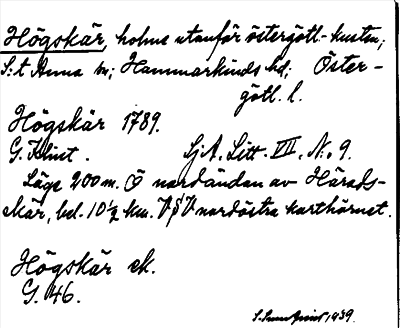 Högskär, holme utanför östergötl.-kusten;
S:t Anna sn; Hammarkinds hd; Öster-
götl. l.
Högskär 1789.
G. Klint. SjA. Litt. VII. No 9.
Läge 200 m. Ö nordändan av Härads-
skär, bel. 10 ½ km. VSV nordöstra karthörnet.
Högskär ek.
G. 46.
1939.